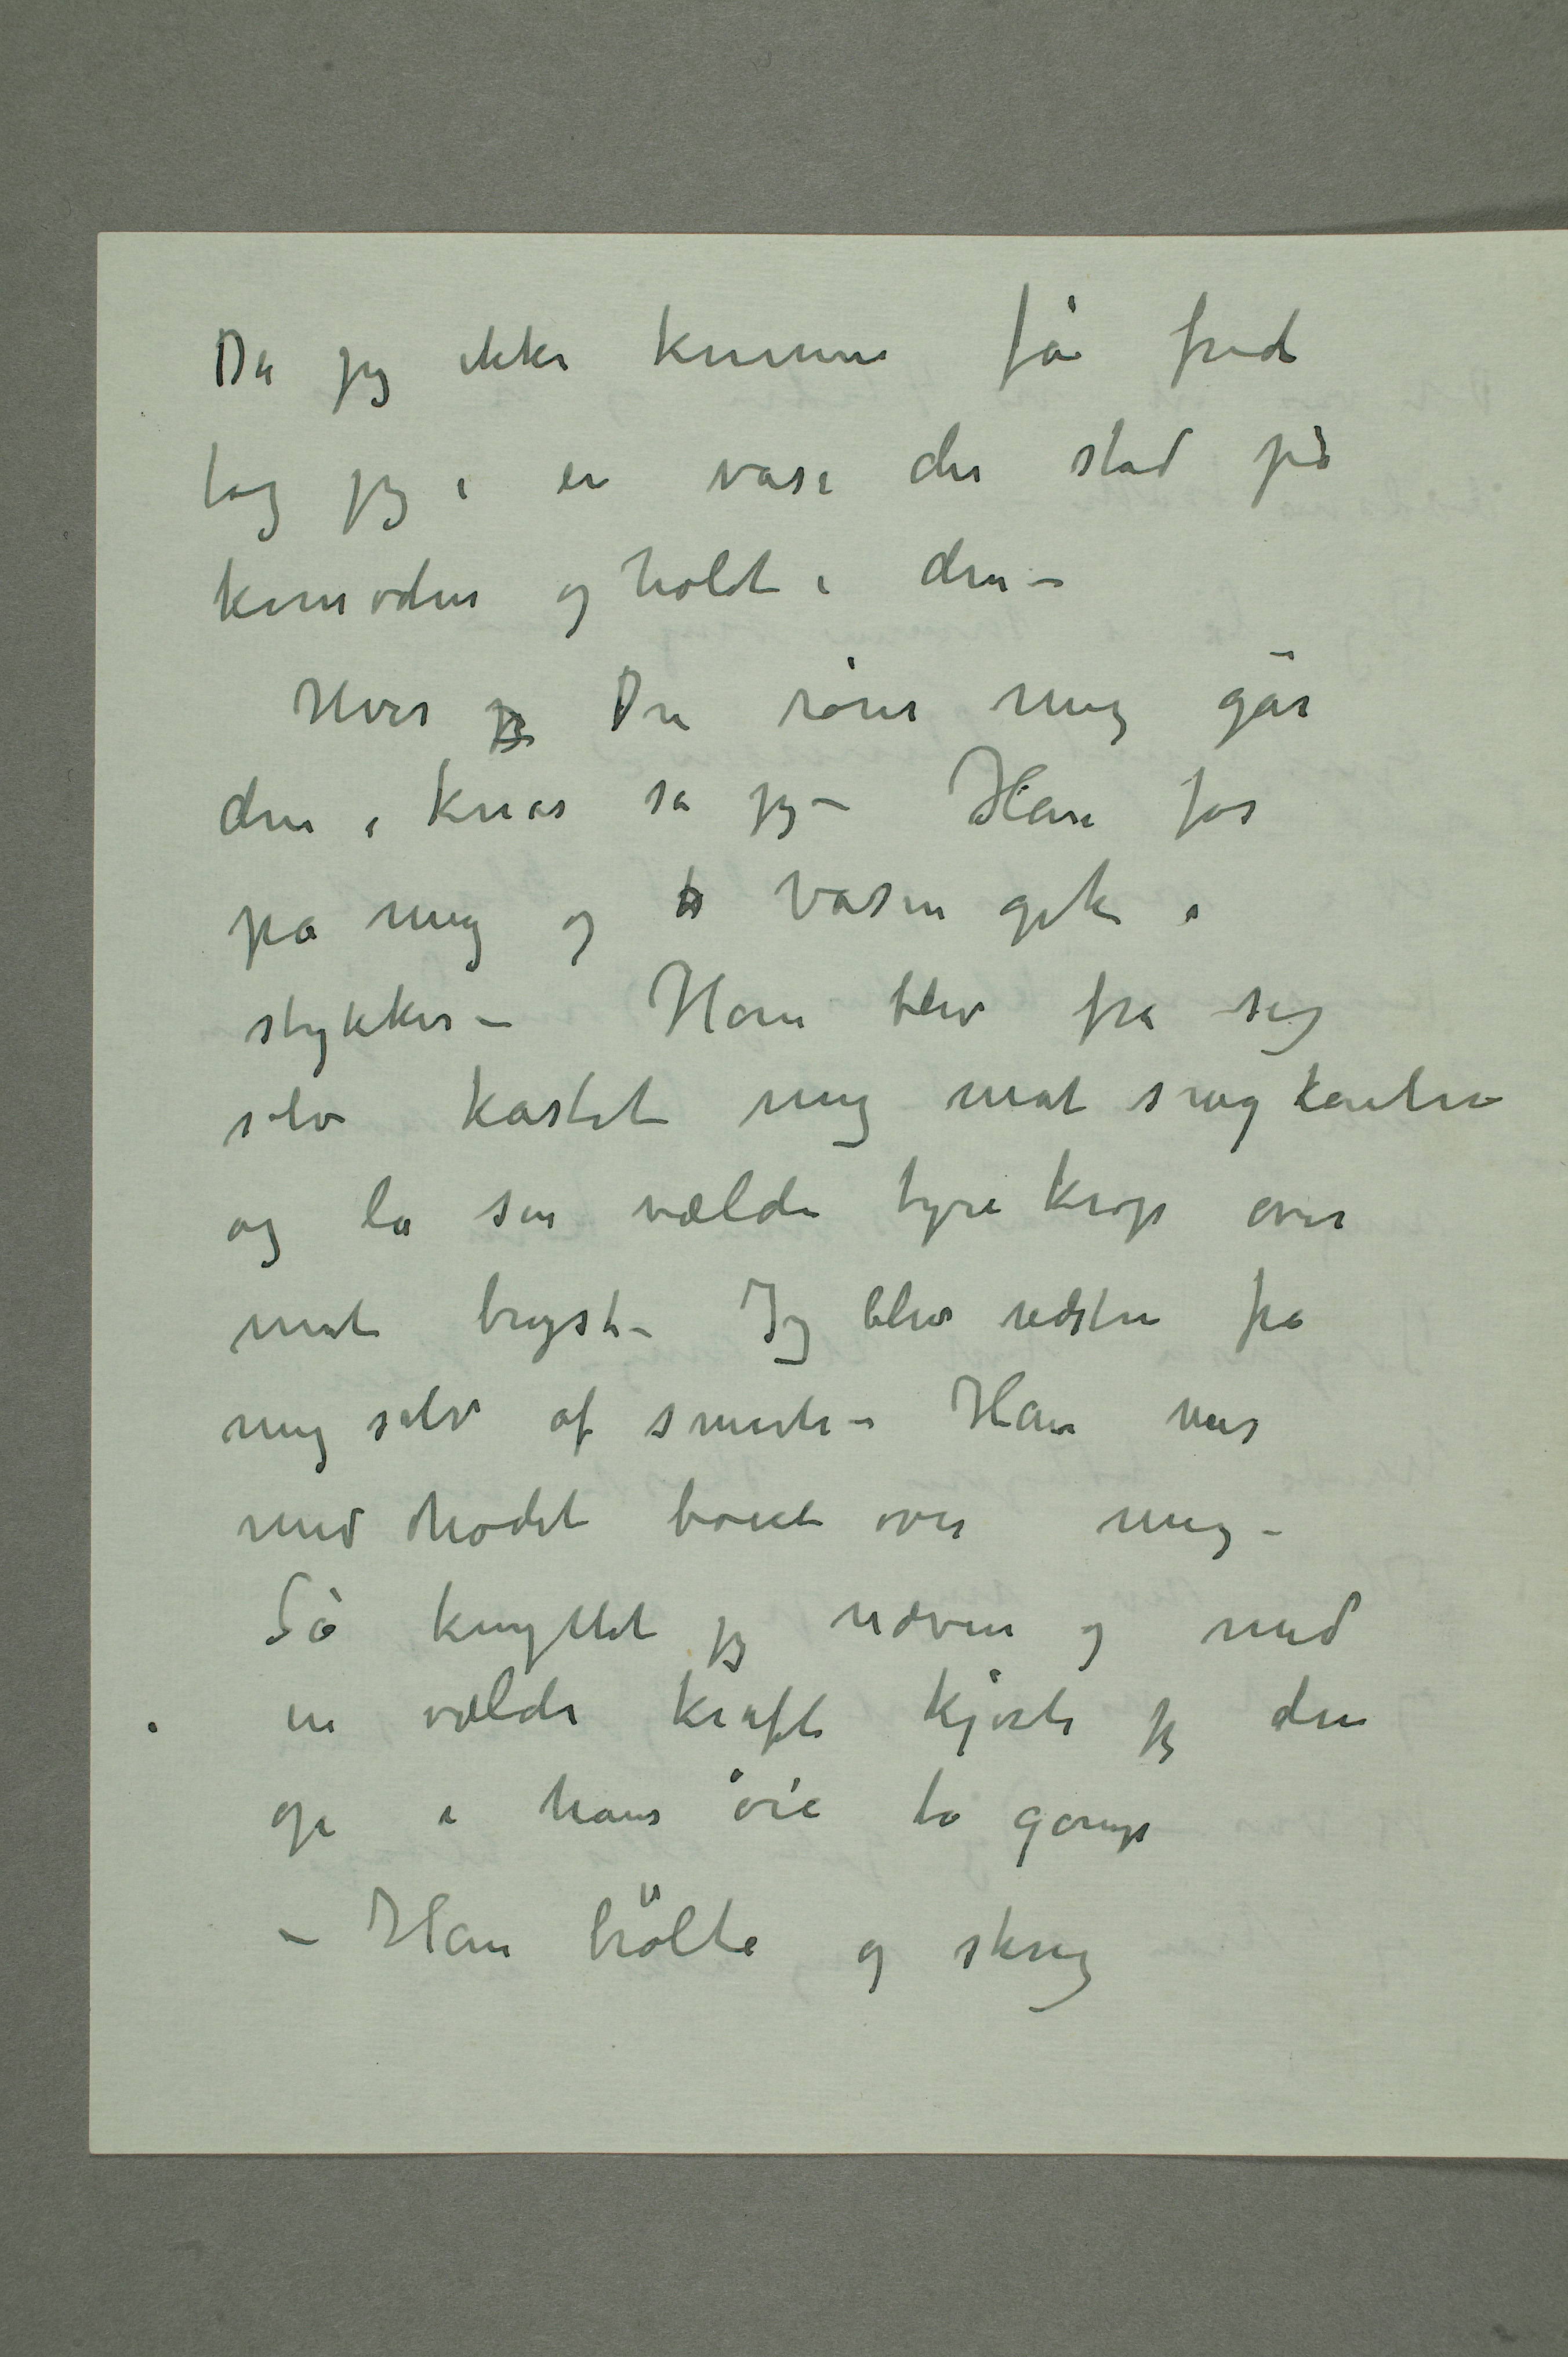 Da jeg ikke kunne få fred
tog jeg i en vase der stod på
komoden og holdt i den –
Hvis jeg Du rører mig går
den i knas sa jeg – Han for
på mig og to vasen gik i
stykker – Han blev fra sig
selv kastet mig mot sengkanten
og la sin vælde tyrekrop over
mit bryst – Jeg blev næsten fra
mig selv af smerte – Han var
med hodet bøiet over mig –
Så knyttet jeg næven og med
en vælde kraft kjørte jeg den
op i hans øie to gange
– Han brølte og skreg